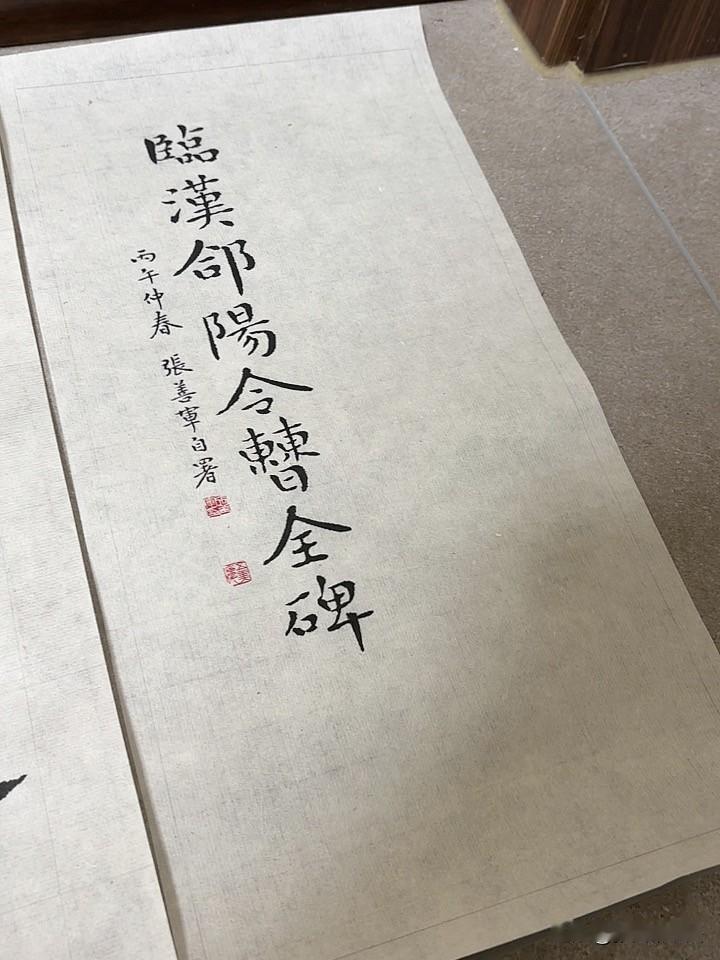 臨漢郃陽令𣍘全碑
丙午仲春 張善軍自署